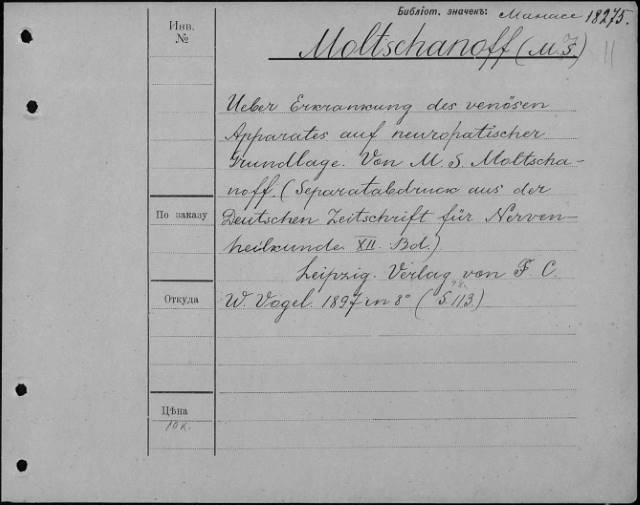 Библіот. значенъ: Манасс 18275.
Инв.
№
Moltschanoff (M. S.)
Ueber Erkrankung des venösen
Apparates auf neuropatischer
Grundlage. Von M. S. Moltscha-
noff. (Separatabdruck aus der
По заказу
Deutschen Zeitschrift für Nerven-
heilkunde XII. Bd.)
Leipzig. Verlag von F. C.
Откуда
W. Vogel. 1897 in 8° (S. 113)
Цѣна
10 к.